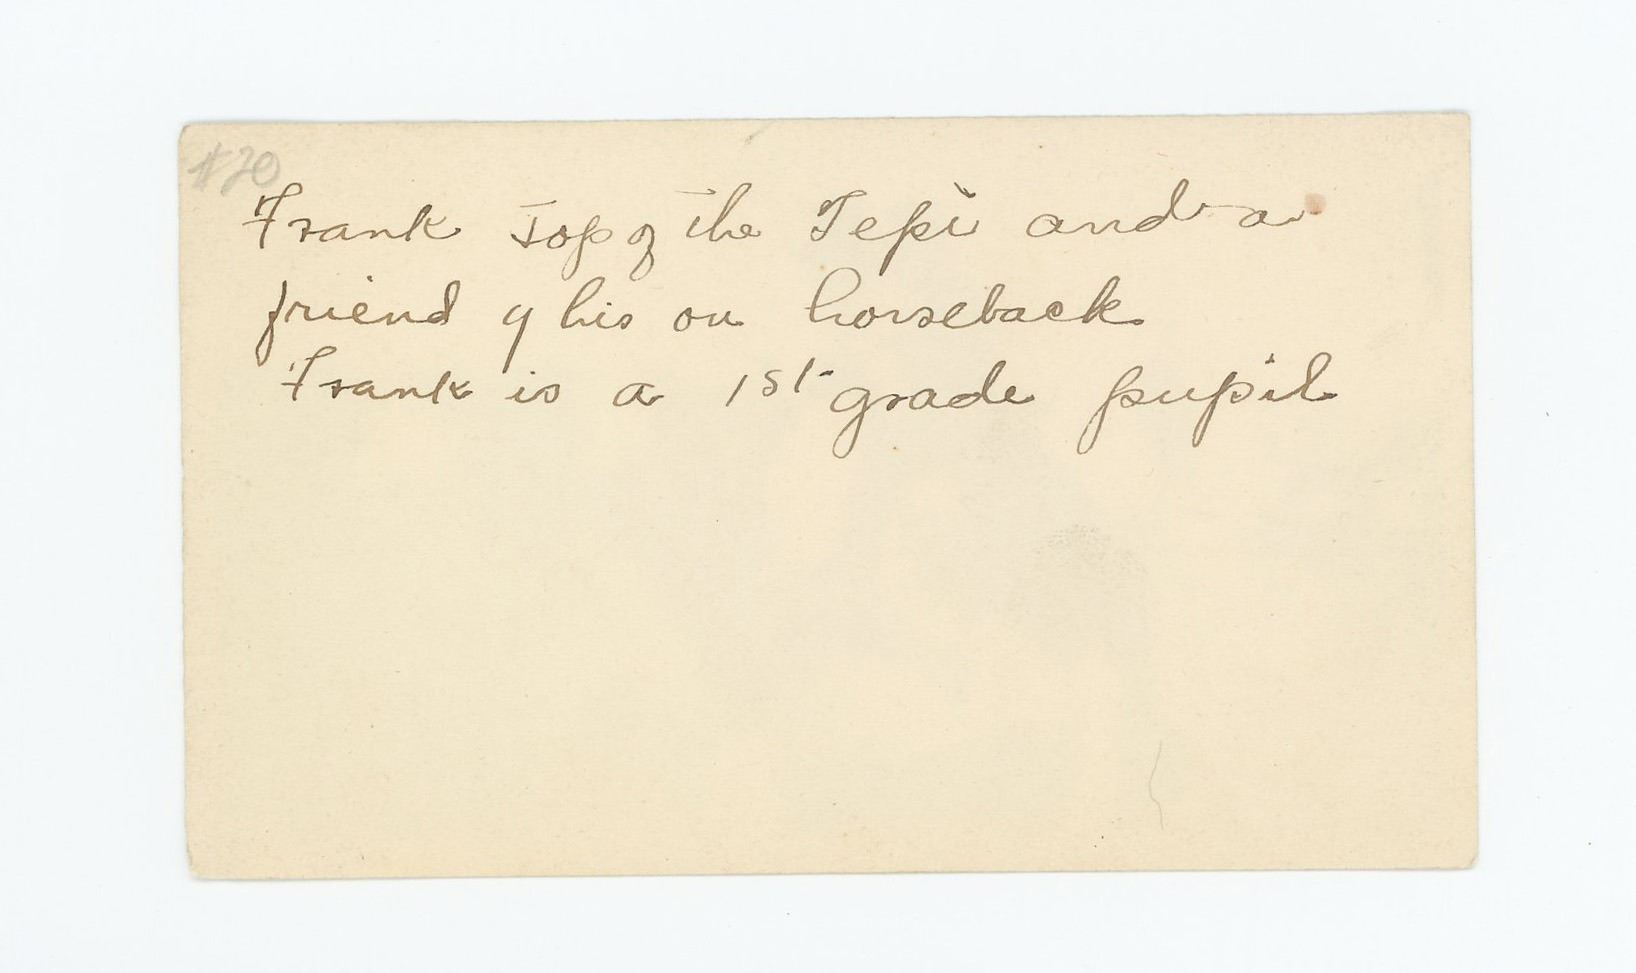 #20
Frank Top of the Tepi and a
friend of his on horseback
Frank is a 1st grade pupil